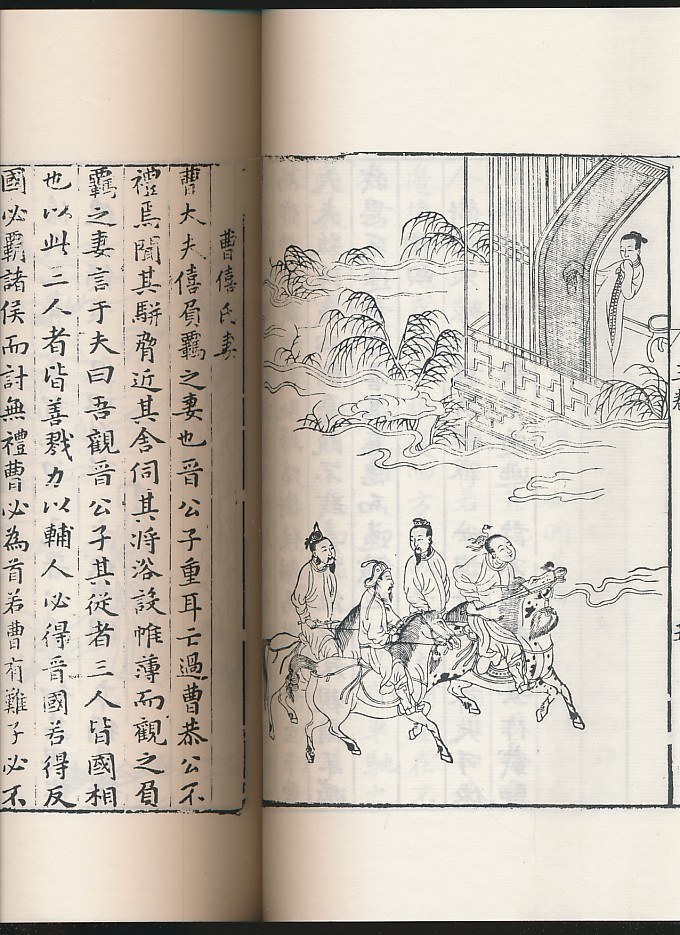 曹僖氏妻
曹大夫僖負羈之妻也晉公子重耳亡過曹恭公不
禮焉聞其駢脅近其舍伺其將浴設帷薄而觀之負
羈之妻言于夫曰吾觀晉公子其從者三人皆國相
也以此三人者皆善戮力以輔人必得晉國若得反
國必霸諸侯而討無禮曹必為首若曹有難子必不